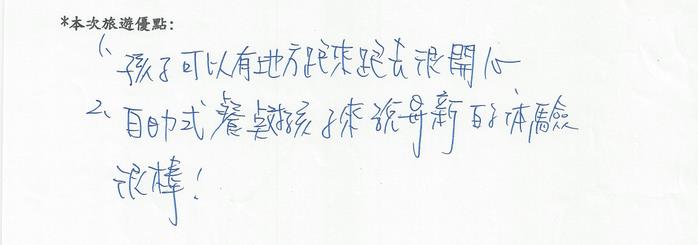 *本次旅遊優點:
1、孩子可以有地方跑來跑去很開心
2、自助式餐點對孩子來說是新的體驗
很棒!